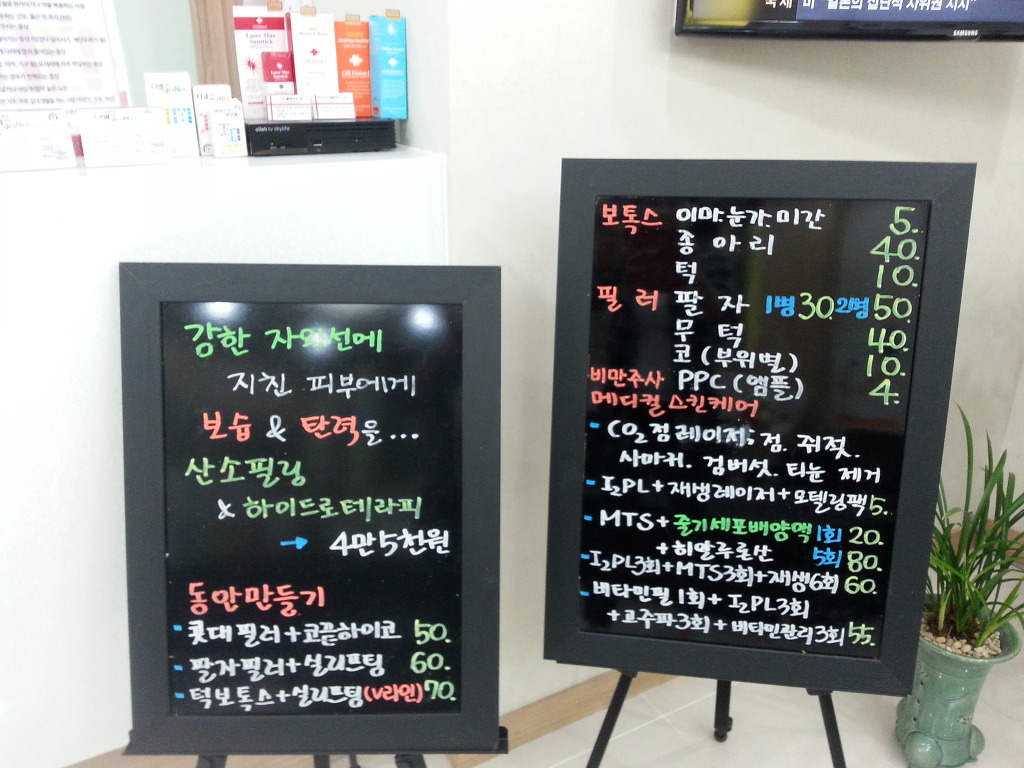 국 제 미 "일본의 집단적 자위권 지지"
SAMSUNG
Laser Max
Sunstick
Cell Fusion C
olleh tv skylife
강한 자외선에
지친 피부에게
보습 & 탄력을...
산소필링
& 하이드로테라피
→ 4만5천원
동안만들기
- 콧대필러+코끝하이코 50.
- 팔자필러+실리프팅 60.
- 턱보톡스+실리프팅(V라인) 70.
보톡스 이마.눈가.미간 5.
종아리 40.
턱 10.
필러 팔자 1병 30. 2병 50.
무턱 40.
코(부위별) 10.
비만주사 PPC(앰플) 4.
메디컬스킨케어
- CO2점레이저; 점. 쥐젖.
사마귀. 검버섯. 티눈 제거
- I2PL+재생레이저+모델링팩 5.
- MTS+줄기세포배양액 1회 20.
+히알루론산 5회 80.
- I2PL3회+MTS3회+재생6회 60.
- 비타민필1회+I2PL3회
+고주파3회+비타민관리3회 55.